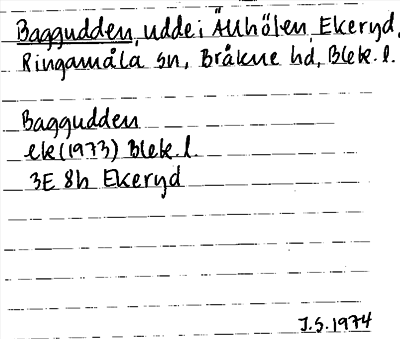 Baggudden, udde i Äuhölen, Ekeryd,
Ringamåla sn, Bräkne hd, Blek. l.
Baggudden
ek (1973) Blek. l.
3E 8h Ekeryd
J.S. 1974